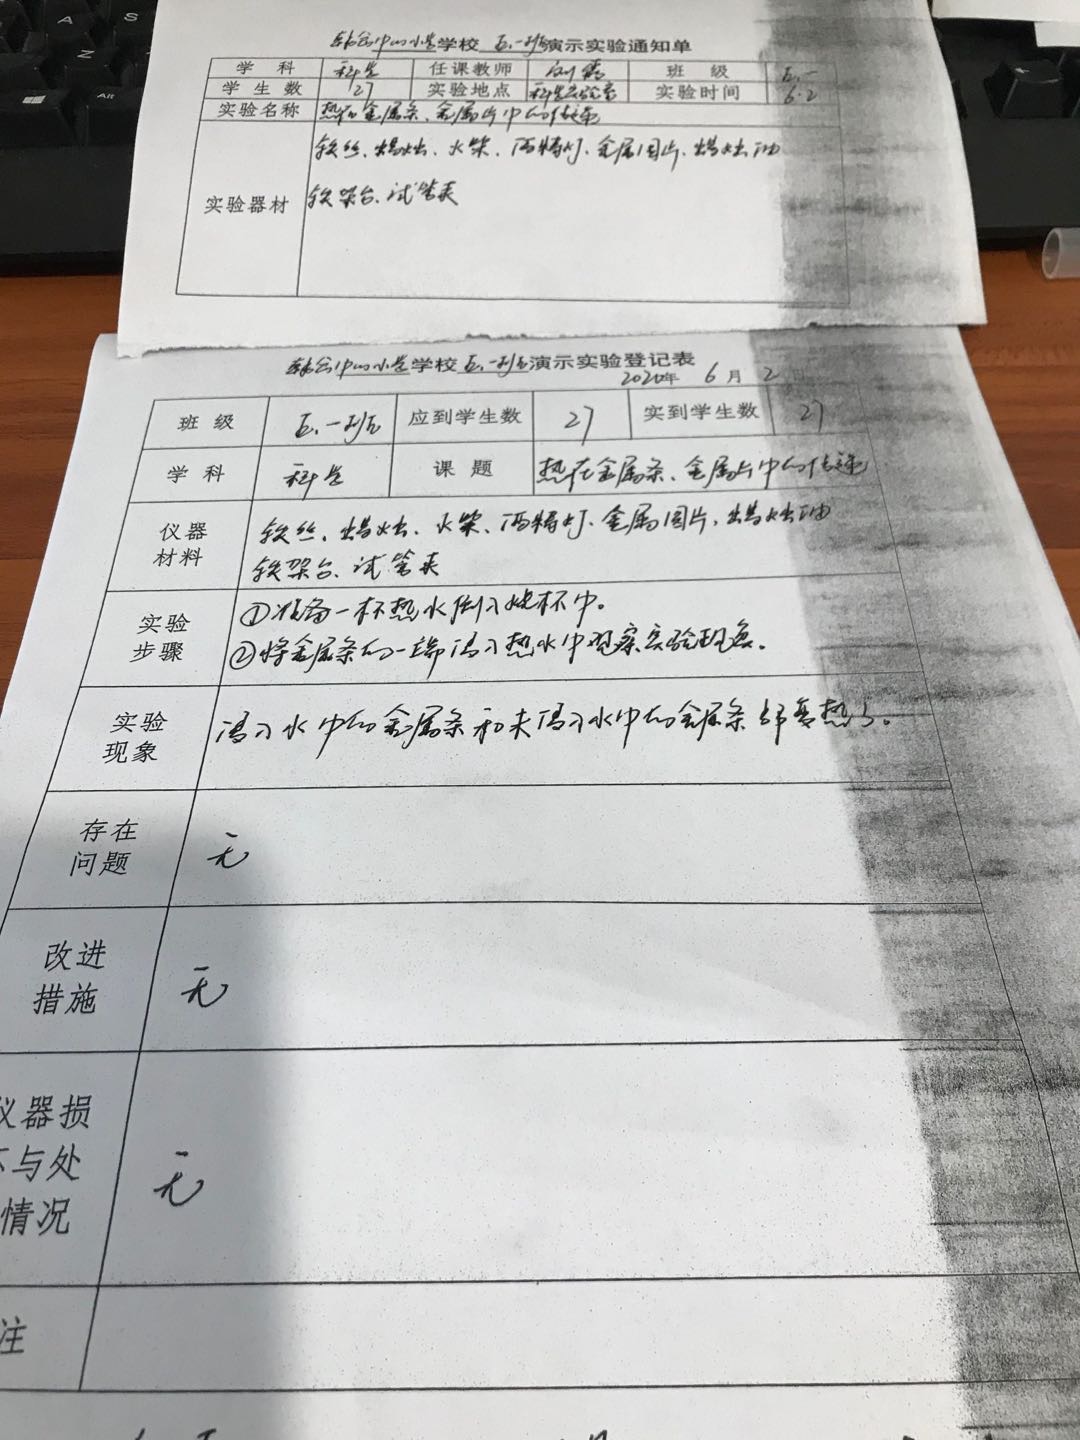 中心小学学校 五.一班演示实验通知单
学科 科学 任课教师 班级 五.一
学生数 27 实验地点 科学实验室 实验时间 6.2
实验名称 热在金属条、金属片中的传递
铁丝、蜡烛、火柴、酒精灯、金属圆片、蜡烛油
实验器材 铁架台、试管夹
中心小学学校 五.一班演示实验登记表
2020年 6月 2
班级 五.一班 应到学生数 27 实到学生数 27
学科 科学 课题 热在金属条、金属片中的传递
仪器 铁丝、蜡烛、火柴、酒精灯、金属圆片、蜡烛油
材料 铁架台、试管夹
实验 ①准备一杯热水倒入烧杯中。
步骤 ②将金属条的一端浸入热水中观察实验现象。
实验 浸入水中的金属条和未浸入水中的金属条都变热了。
现象
存在
问题 无
改进
措施 无
仪器损
与处 无
情况
注